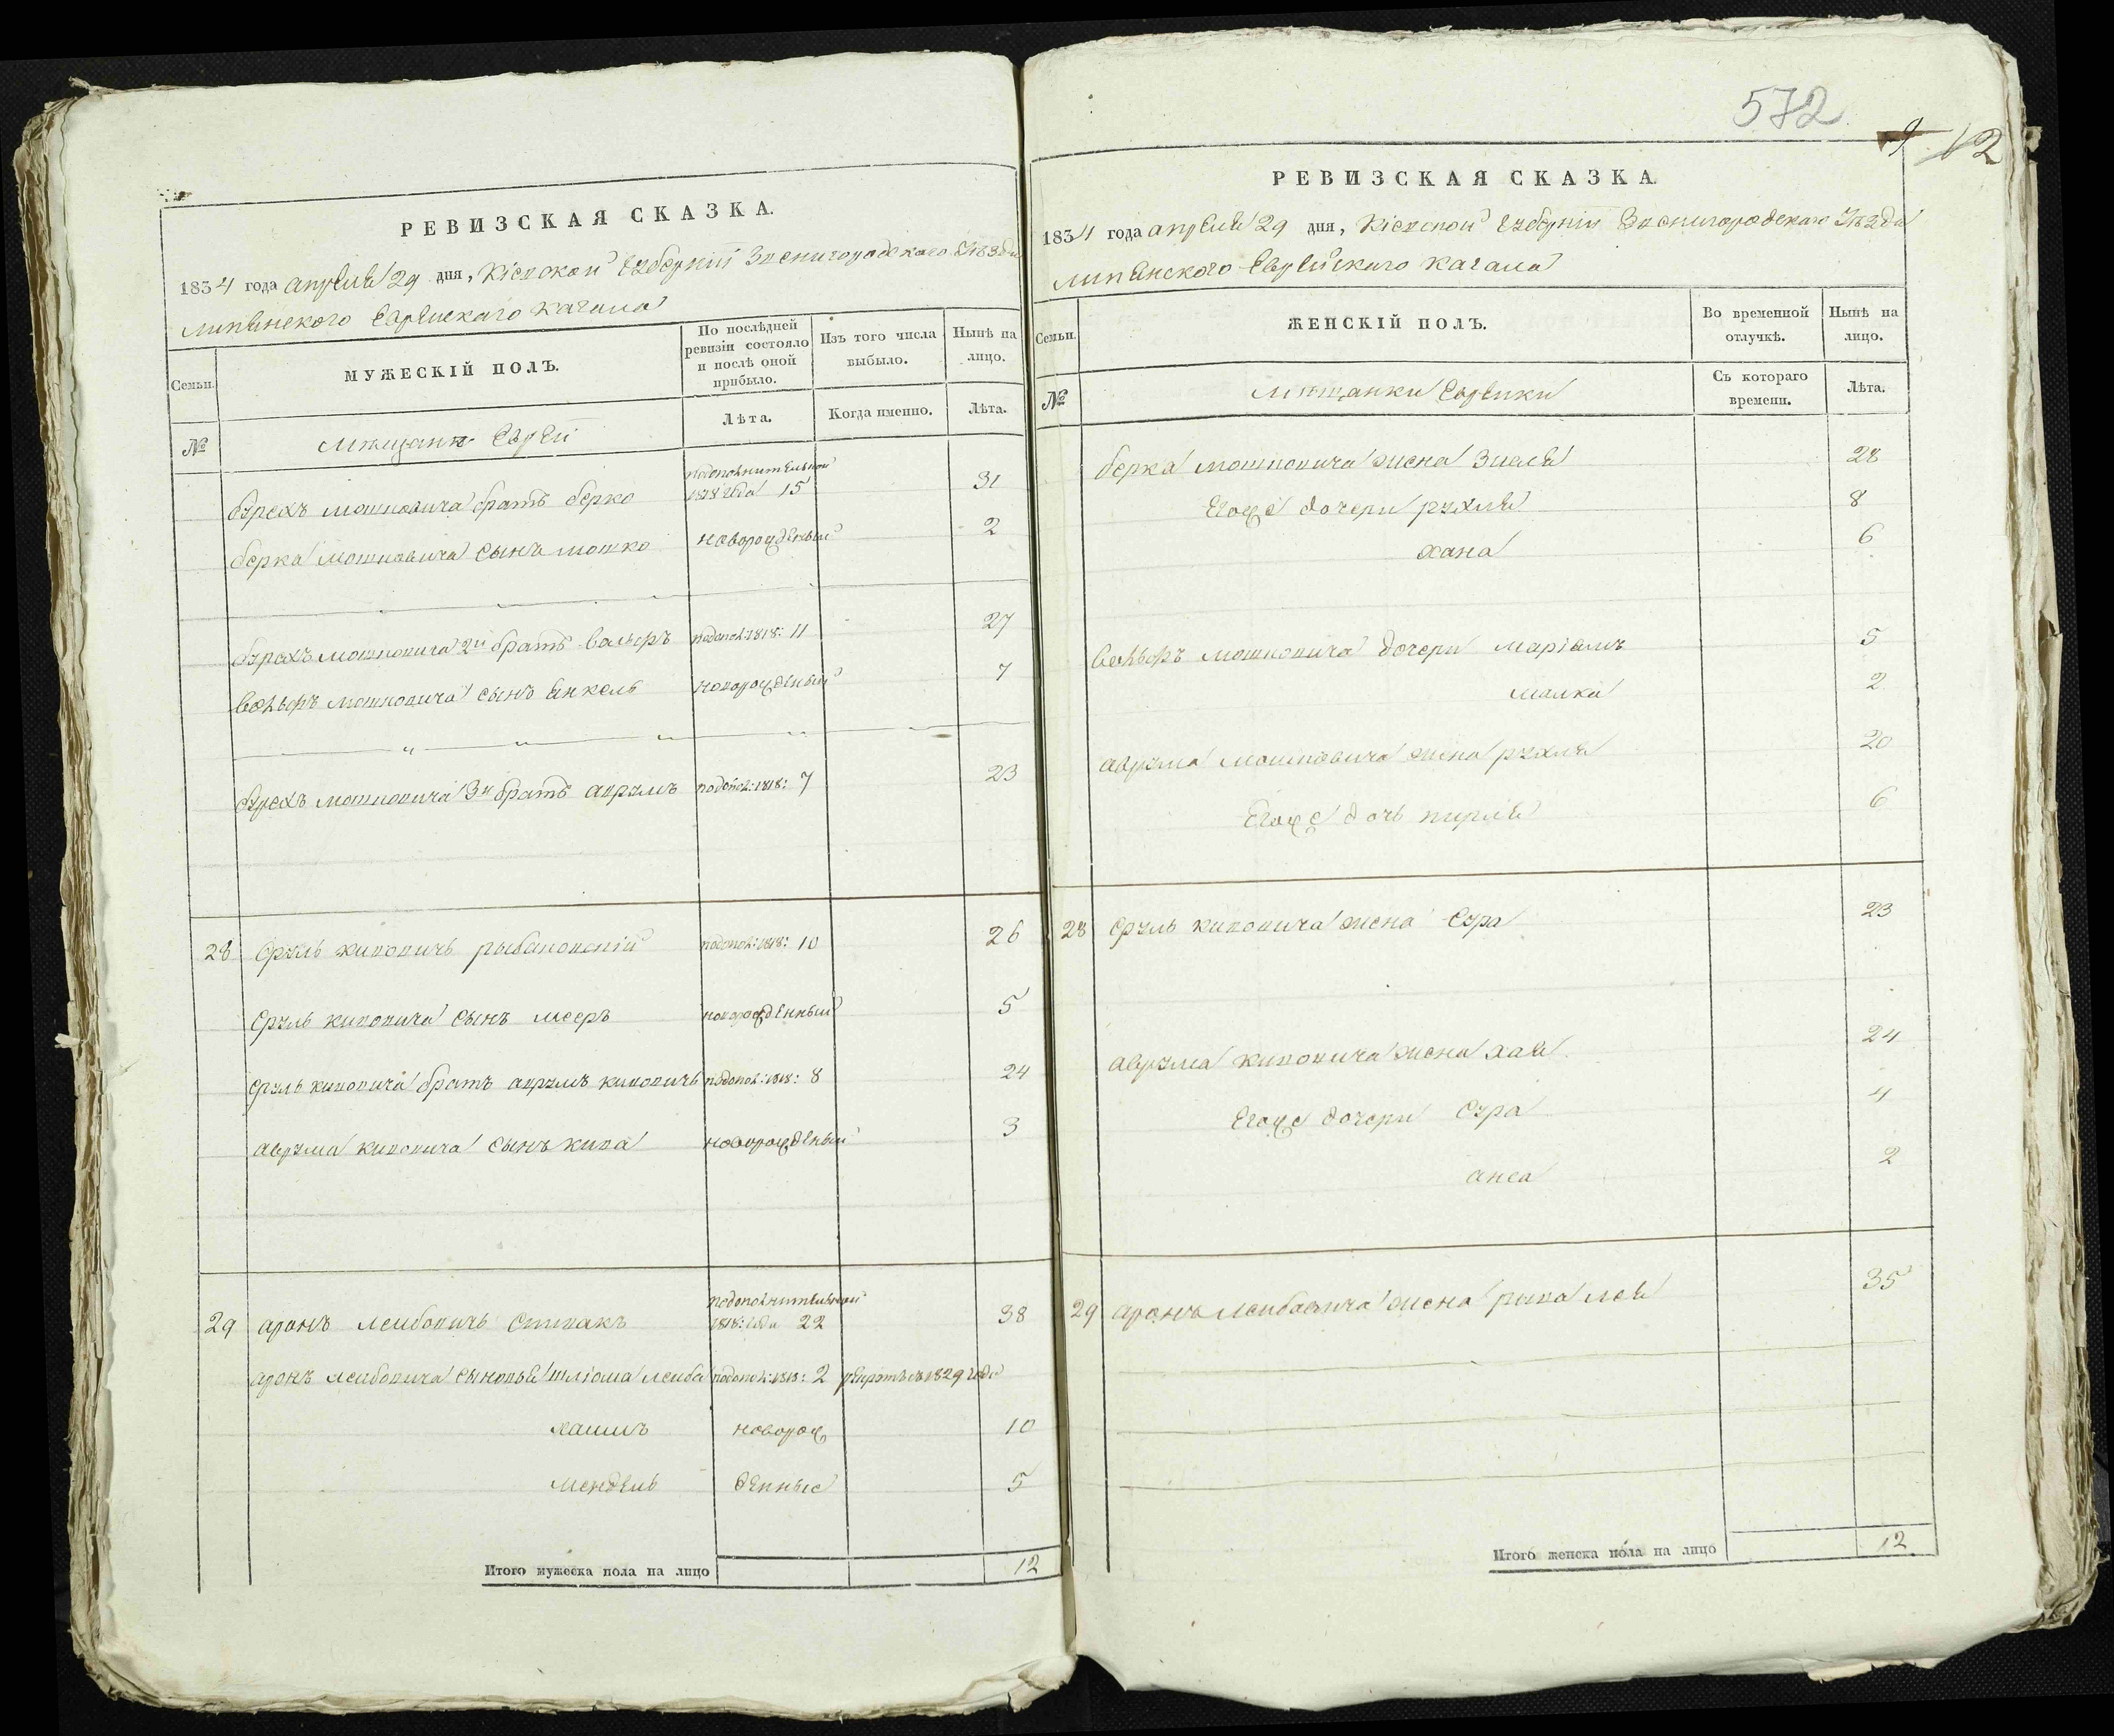 РЕВИЗСКАЯ СКАЗКА.
1834 года апреля 29 дня, Кіевской Губерніи Звенигородскаго Уѣзда
липянского Еврейскаго кагала
Семьи.
МУЖЕСКІЙ ПОЛЪ.
По послѣдней ревизіи состояло и послѣ оной прибыло.
Изъ того числа выбыло.
Нынѣ на лицо.
№
мѣщане Евреи
Лѣта.
Когда именно.
Лѣта.
бурехъ мошковича братъ берко подополнительной 1818 года 15 31
берка мошковича сынъ мошко новорожденый 2
бурехъ мошковича 2й братъ вольфъ подопол: 1818: 11 27
вольфъ мошковича сынъ янкель новорожденый 7
бурехъ мошковича 3й братъ аврумъ подопол: 1818: 7 23
28 сруль кивовичъ подопол: 1818: 10 26
сруль кивовича сынъ мееръ новорожденный 5
сруль кивовича братъ аврумъ кивовичъ подопол: 1818: 8 24
аврума кивовича сынъ кива новорожденый 3
29 аронъ лейбовичъ спивакъ подополнительной 1818: года 22 38
аронъ лейбовича сыновья шліома лейба подопол: 1818: 2 умротъ въ 1829 годе
хаимъ новорож 10
мендель денные 5
Итого мужеска пола на лицо 12
572
9 12
РЕВИЗСКАЯ СКАЗКА.
1834 года апреля 29 дня, Кіевской Губерніи Звенигородскаго Уѣзда
липянского Еврейскаго кагала
Семьи.
ЖЕНСКІЙ ПОЛЪ.
Во временной отлучкѣ.
Нынѣ на лицо.
№
мѣщанки Еврейки
Съ котораго времени.
Лѣта.
берка мошковича жена зисля 28
Егоже дочери рухля 8
хана 6
вольфъ мошковича дочери маріямъ 5
малка 2
аврума мошковича жена рухля 20
Егоже дочь перля 6
28 сруль кивовича жена сура 23
аврума кивовича жена хая 24
Егоже дочери сура 4
анса 2
29 аронъ лейбовича жена рива лея 35
Итого женска пола на лицо 12